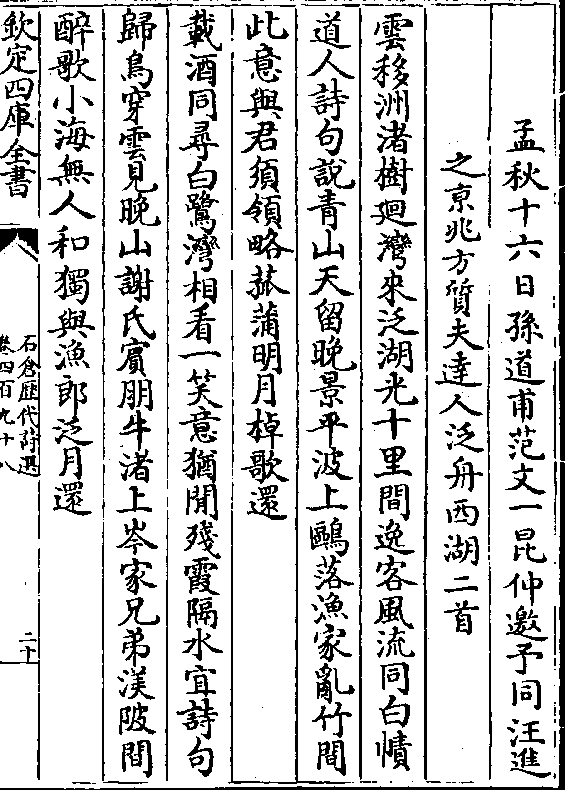 孟秋十六日孫道甫范文一昆仲邀予同汪進
之京兆方質夫達人泛舟西湖二首
雲移洲渚樹廻灣來泛湖光十里間逸客風流同白幘
道人詩句說青山天留晚景平波上鷗落漁家亂竹間
此意與君須領略菰蒲明月棹歌還
載酒同尋白鷺灣相看一笑意猶閒殘霞隔水宜詩句
歸鳥穿雲見晚山謝氏賓朋牛渚上岑家兄弟渼陂間
醉歌小海無人和獨與漁郎泛月還
欽定四庫全書
石倉歷代詩選
卷四百九十八
二十